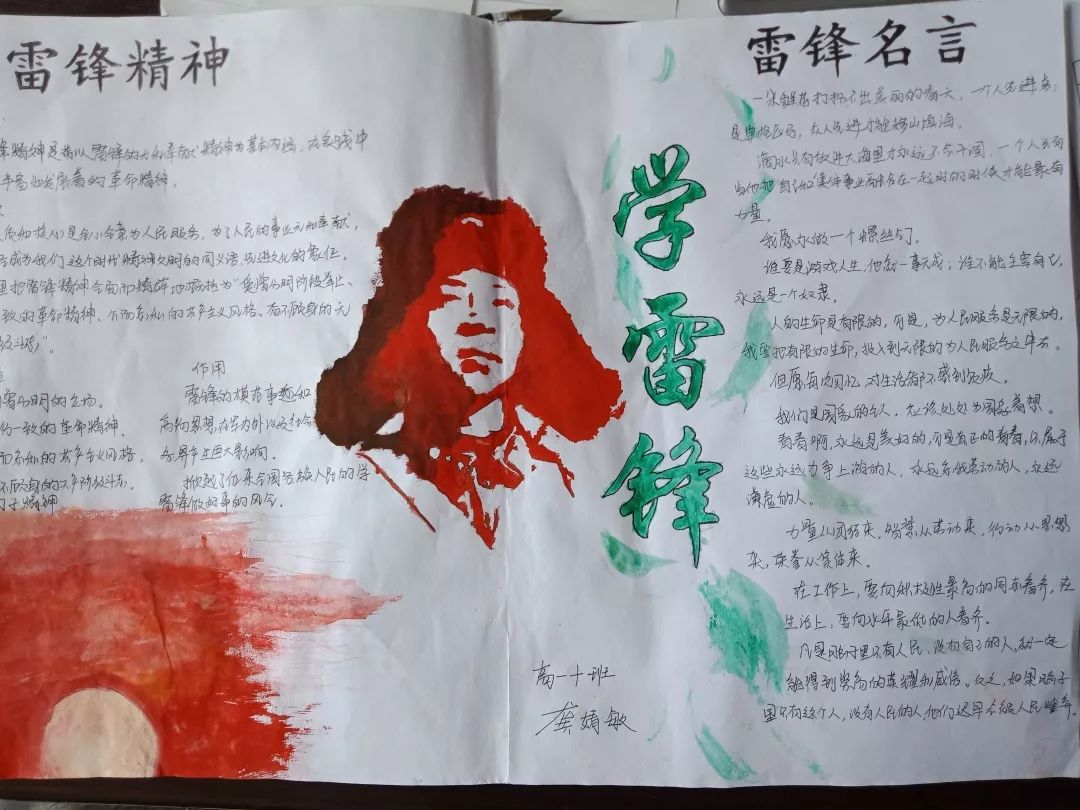 雷锋精神
锋精神是指以雷锋的无私奉献精神为基本内涵，在实践中
丰富和发展着的革命精神。
质和核心是全心全意为人民服务，为了人民的事业无私奉献，
成为我们这个时代精神文明的同义语、先进文化的表征。
把雷锋精神全面而精辟地概括为“爱憎分明的阶级立
致的革命精神、公而忘私的共产主义风格、奋不顾身的无
级斗志”。
憎分明的立场。
行一致的革命精神、
而忘私的共产主义风格。
不顾身的无产阶级斗志
钉子精神
作用
雷锋的模范事迹和
高尚思想，在军内外以及社会
各界产生巨大影响。
掀起了后来全国各族人民的学
雷锋做好事的风气。
学雷锋
高一十班
龚婧敏
雷锋名言
一朵鲜花打扮不出美丽的春天，一个人先进总
是单枪匹马，众人先进才能移山填海。
滴水只有放进大海里才永远不会干涸，一个人只有
当他把自己和集体事业融合在一起的时候才能最有
力量。
我愿永做一个螺丝钉。
谁要是游戏人生，他就一事无成；谁不能主宰自己，
永远是一个奴隶。
人的生命是有限的，可是，为人民服务是无限的，
我要把有限的生命，投入到无限的为人民服务之中去。
但愿每次回忆，对生活都不感到负疚
我们是国家的主人，应该处处为国家着想。
青春啊，永远是美好的，可是真正的青春，只属于
这些永远力争上游的人，永远忘我劳动的人，永远
谦虚的人。
力量从团结来，智慧从劳动来，行动从思想
来，荣誉从集体来。
在工作上，要向积极性最高的同志看齐，在
生活上，要向水平最低的人看齐。
凡是脑子里只有人民、没有自己的人，就一定
能得到崇高的荣耀和威信。反之，如果脑子
里只有个人，没有人民的人，他们迟早会被人民唾弃。